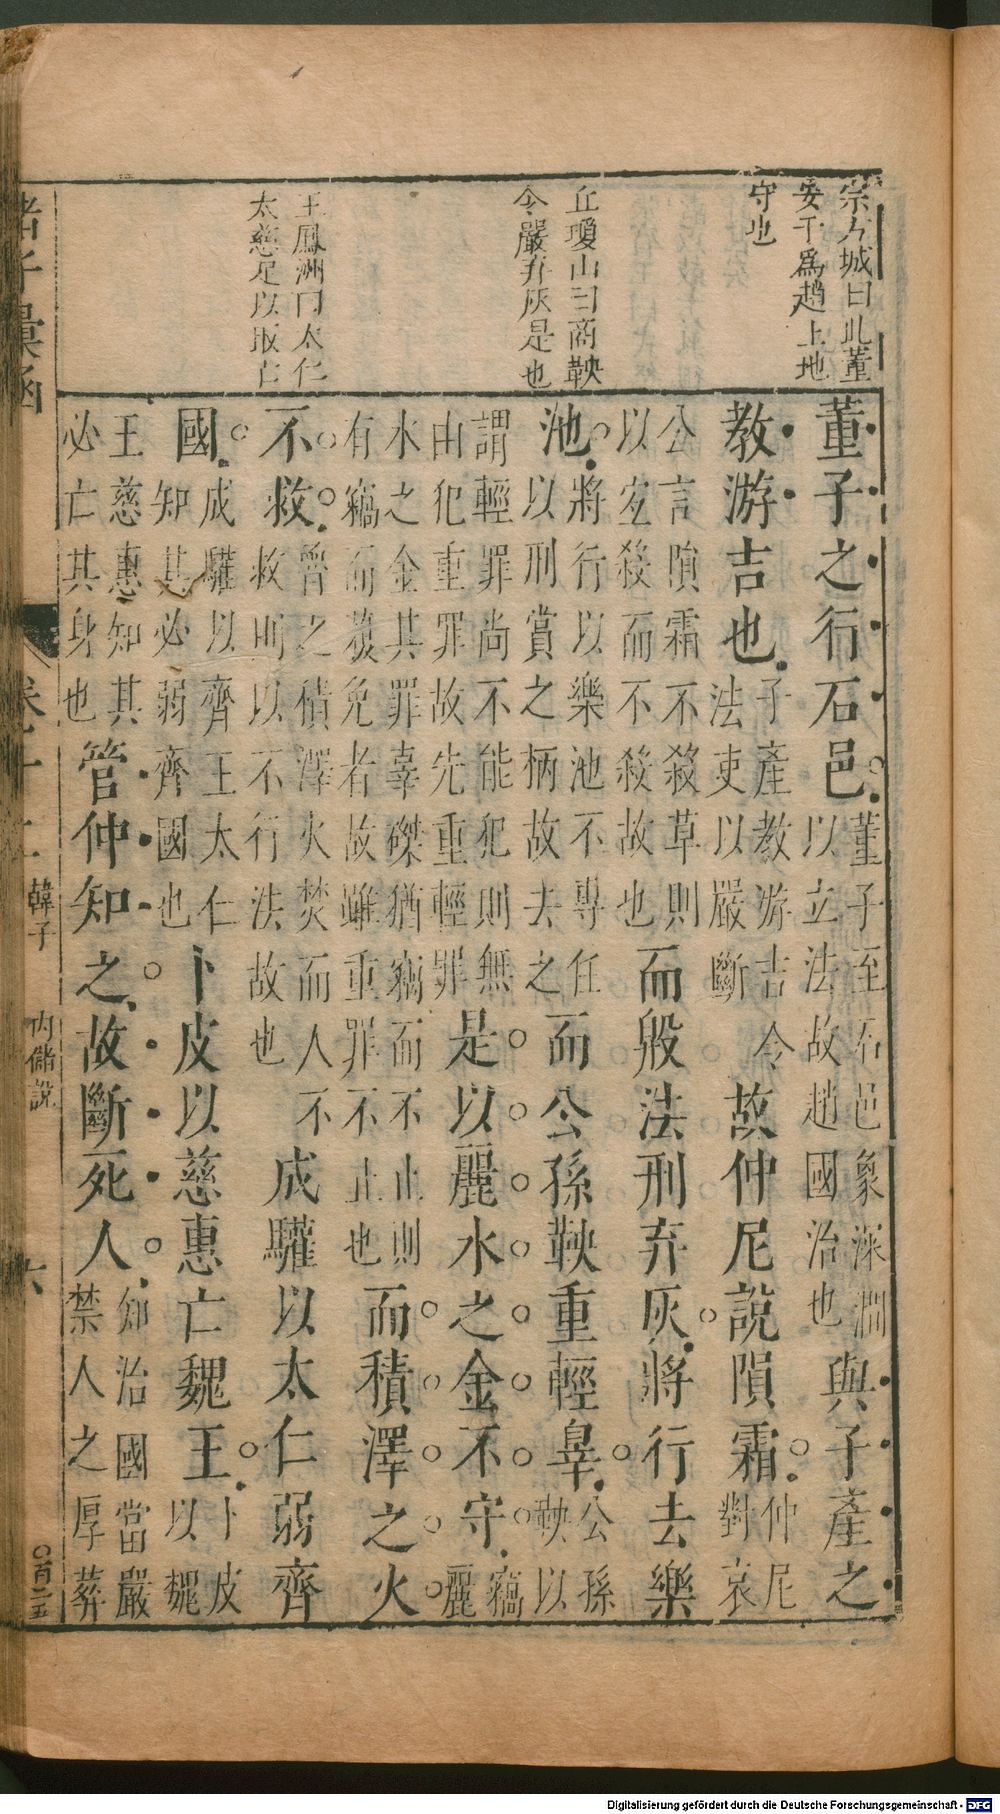 宗方城曰此董
安于為趙上地
守也
丘瓊山曰商鞅
令嚴弃灰是也
王鳳洲曰太仁
太慈足以取亡
董子之行石邑董子至石邑象深澗以立法故趙國治也與子產之
教游吉也子產教游吉令法吏以嚴斷故仲尼說隕霜仲尼對哀
公言隕霜不殺草則以宜殺而不殺故也而殷法刑弃灰將行去樂
池將行以樂池不專任以刑賞之柄故去之而公孫鞅重輕辠公孫鞅以
謂輕罪尚不能犯則無由犯重罪故先重輕罪是以麗水之金不守竊麗
水之金其罪辜磔猶竊而不止則有竊而獲免者故雖重罪不止也而積澤之火
不救魯之積澤火焚而人不救則以不行法故也成驩以太仁弱齊
國成驩以齊王太仁知其必弱齊國也卜皮以慈惠亡魏王卜皮以魏
王慈惠知其必亡其身也管仲知之故斷死人知治國當嚴禁人之厚葬
諸子彙函
韓子
內儲說
六
〇百二五
Digitalisierung gefördert durch die Deutsche Forschungsgemeinschaft - DFG